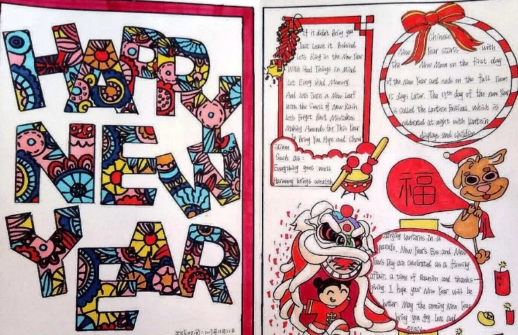 HAPPY
NEW
YEAR
If it didn't bring you
Just Leave it Behind
Let's Ring in the New Year
With Good Things in Mind
Let Every Bad Memory
And Let's Turn a New Leaf
with the
Let's Forget Past Mistakes
Amends for This Year
Bring You Hope and Cheer
Such as:
Everything goes well
Harmony brings wealth
Chinese
New Year starts with
The New Moon on the first day
of the new year and ends on the full moon
15 days later. The 15th day of the new Year
is called the Lantern Festival, which is
celebrated at night with lantern
displays and children
福
carrying lanterns in a
parade. New Year's Eve and New
Year's Day are celebrated as a family
affair, a time of reunion and thanks
giving. I hope your New Year will be
better. May the coming New Year
bring you joy, love and